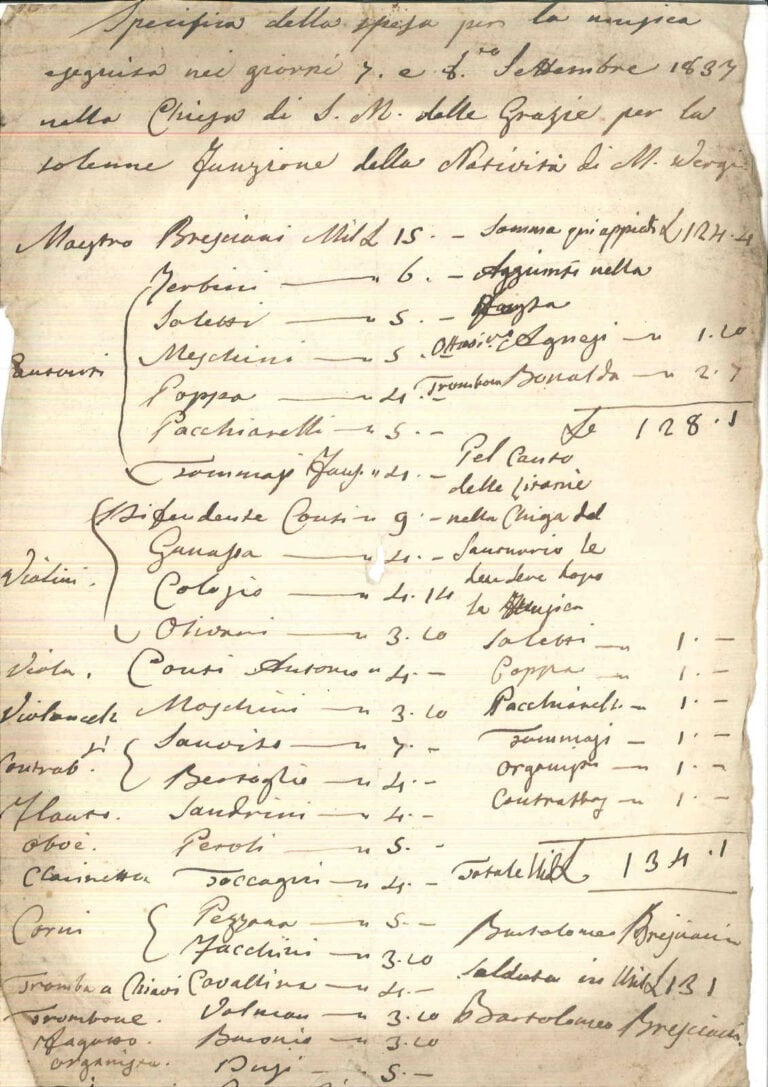 Specifica della spesa per la musica
eseguita nei giorni 7. e 8. Settembre 1837
nella Chiesa di S. M. delle Grazie per la
solenne Funzione della Natività di M. Vergi
Maestro Bresciani Mil £ 15. –
Zerbini — " 6. –
Saletti — " 5. –
Meschini — " 5.
Poppa — " 4. –
Pacchiarelli — " 5. –
Tommasi " 4. –
Violini.
Difendente Consi " 9. –
Ganassa — " 4. –
Cologio — " 4. 14
Olivari — " 3. 10
Viola. Consi Antonio " 4. –
Violoncello Moschini — " 3. 10
Contrab.
Sanvito — " 7. –
Bersaglio — " 4. –
Flauto. Sandrini — " 4. –
Oboè. Peroli — " 5. –
Clarinetto Toccagni — " 4. –
Corni
Pezzana — " 5. –
Facchini — " 3. 10
Tromba a Chiavi Cavallina — " 4. –
Trombone. — " 3. 10
Fagotto. — " 3. 10
organista. — " 5. –
Somma qui appiedi £ 124. 4
Aggiunti nella
Agnesi — " 1. 10
Trombone Bonalda — " 2. 7
£ 128. 1
Pel Canto
delle Litanie
nella Chiesa del
Santuario le
dopo
la Musica
Saletti — " 1. –
Poppa — " 1. –
Pacchiarelli — " 1. –
Tommasi — 1. –
Organista — " 1. –
Contrabbas — " 1. –
Totale Mil £ 134. 1
Bartolomeo Bresciani
Saldata in Mil £ 131
Bartolomeo Bresciani